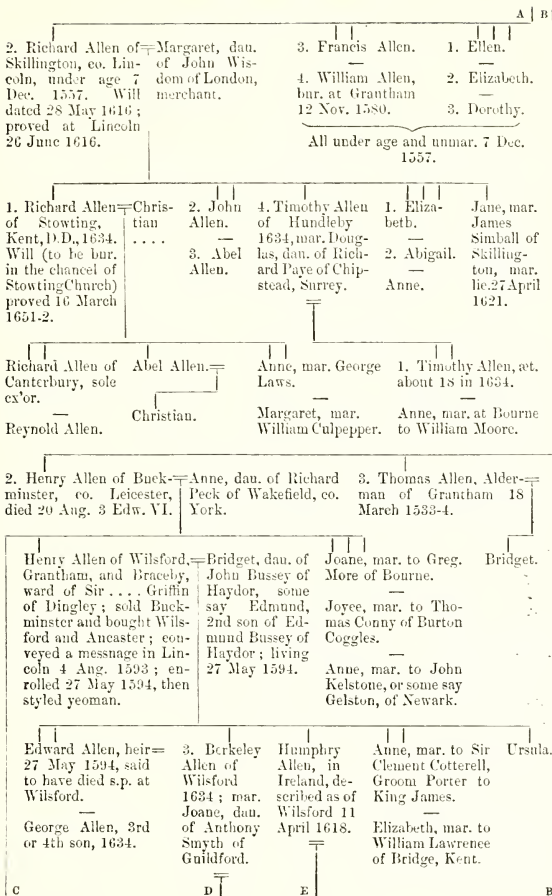 A | B
2. Richard Allen of
Skillington, co. Lin-
coln, under age 7
Dec. 1557. Will
dated 28 May 1616;
proved at Lincoln
26 June 1616.
Margaret, dau.
of John Wis-
dom of London,
merchant.
3. Francis Allen.
—
4. William Allen,
bur. at Grantham
12 Nov. 1580.
1. Ellen.
—
2. Elizabeth.
—
3. Dorothy.
All under age and unmar. 7 Dec.
1557.
1. Richard Allen
of Stowting,
Kent, D.D., 1634.
Will (to be bur.
in the chancel of
Stowting Church)
proved 16 March
1651-2.
Chris-
tian
. . . .
2. John
Allen.
—
3. Abel
Allen.
4. Timothy Allen
of Hundleby
1634, mar. Doug-
las, dau. of Rich-
ard Paye of Chip-
stead, Surrey.
1. Eliza-
beth.
—
2. Abigail.
—
Anne.
Jane, mar.
James
Simball of
Skilling-
ton, mar.
lic. 27 April
1621.
Richard Allen of
Canterbury, sole
ex'or.
—
Reynold Allen.
Abel Allen.
Christian.
Anne, mar. George
Laws.
—
Margaret, mar.
William Culpepper.
1. Timothy Allen, æt.
about 18 in 1634.
—
Anne, mar. at Bourne
to William Moore.
2. Henry Allen of Buck-
minster, co. Leicester,
died 20 Aug. 3 Edw. VI.
Anne, dau. of Richard
Peck of Wakefield, co.
York.
3. Thomas Allen, Alder-
man of Grantham 18
March 1533-4.
Henry Allen of Wilsford,
Grantham, and Braceby,
ward of Sir . . . . Griffin
of Dingley; sold Buck-
minster and bought Wils-
ford and Ancaster; con-
veyed a messnage in Lin-
coln 4 Aug. 1593; en-
rolled 27 May 1594, then
styled yeoman.
Bridget, dau. of
John Bussey of
Haydor, some
say Edmund,
2nd son of Ed-
mund Bussey of
Haydor; living
27 May 1594.
Joane, mar. to Greg.
More of Bourne.
—
Joyce, mar. to Tho-
mas Conny of Burton
Coggles.
—
Anne, mar. to John
Kelstone, or some say
Gelston, of Newark.
Bridget.
Edward Allen, heir
27 May 1594, said
to have died s.p. at
Wilsford.
—
George Allen, 3rd
or 4th son, 1634.
3. Berkeley
Allen of
Wilsford
1634; mar.
Joane, dau.
of Anthony
Smyth of
Guildford.
Humphry
Allen, in
Ireland, de-
scribed as of
Wilsford 11
April 1618.
Anne, mar. to Sir
Clement Cotterell,
Groom Porter to
King James.
—
Elizabeth, mar. to
William Lawrence
of Bridge, Kent.
Ursula.
C D E B